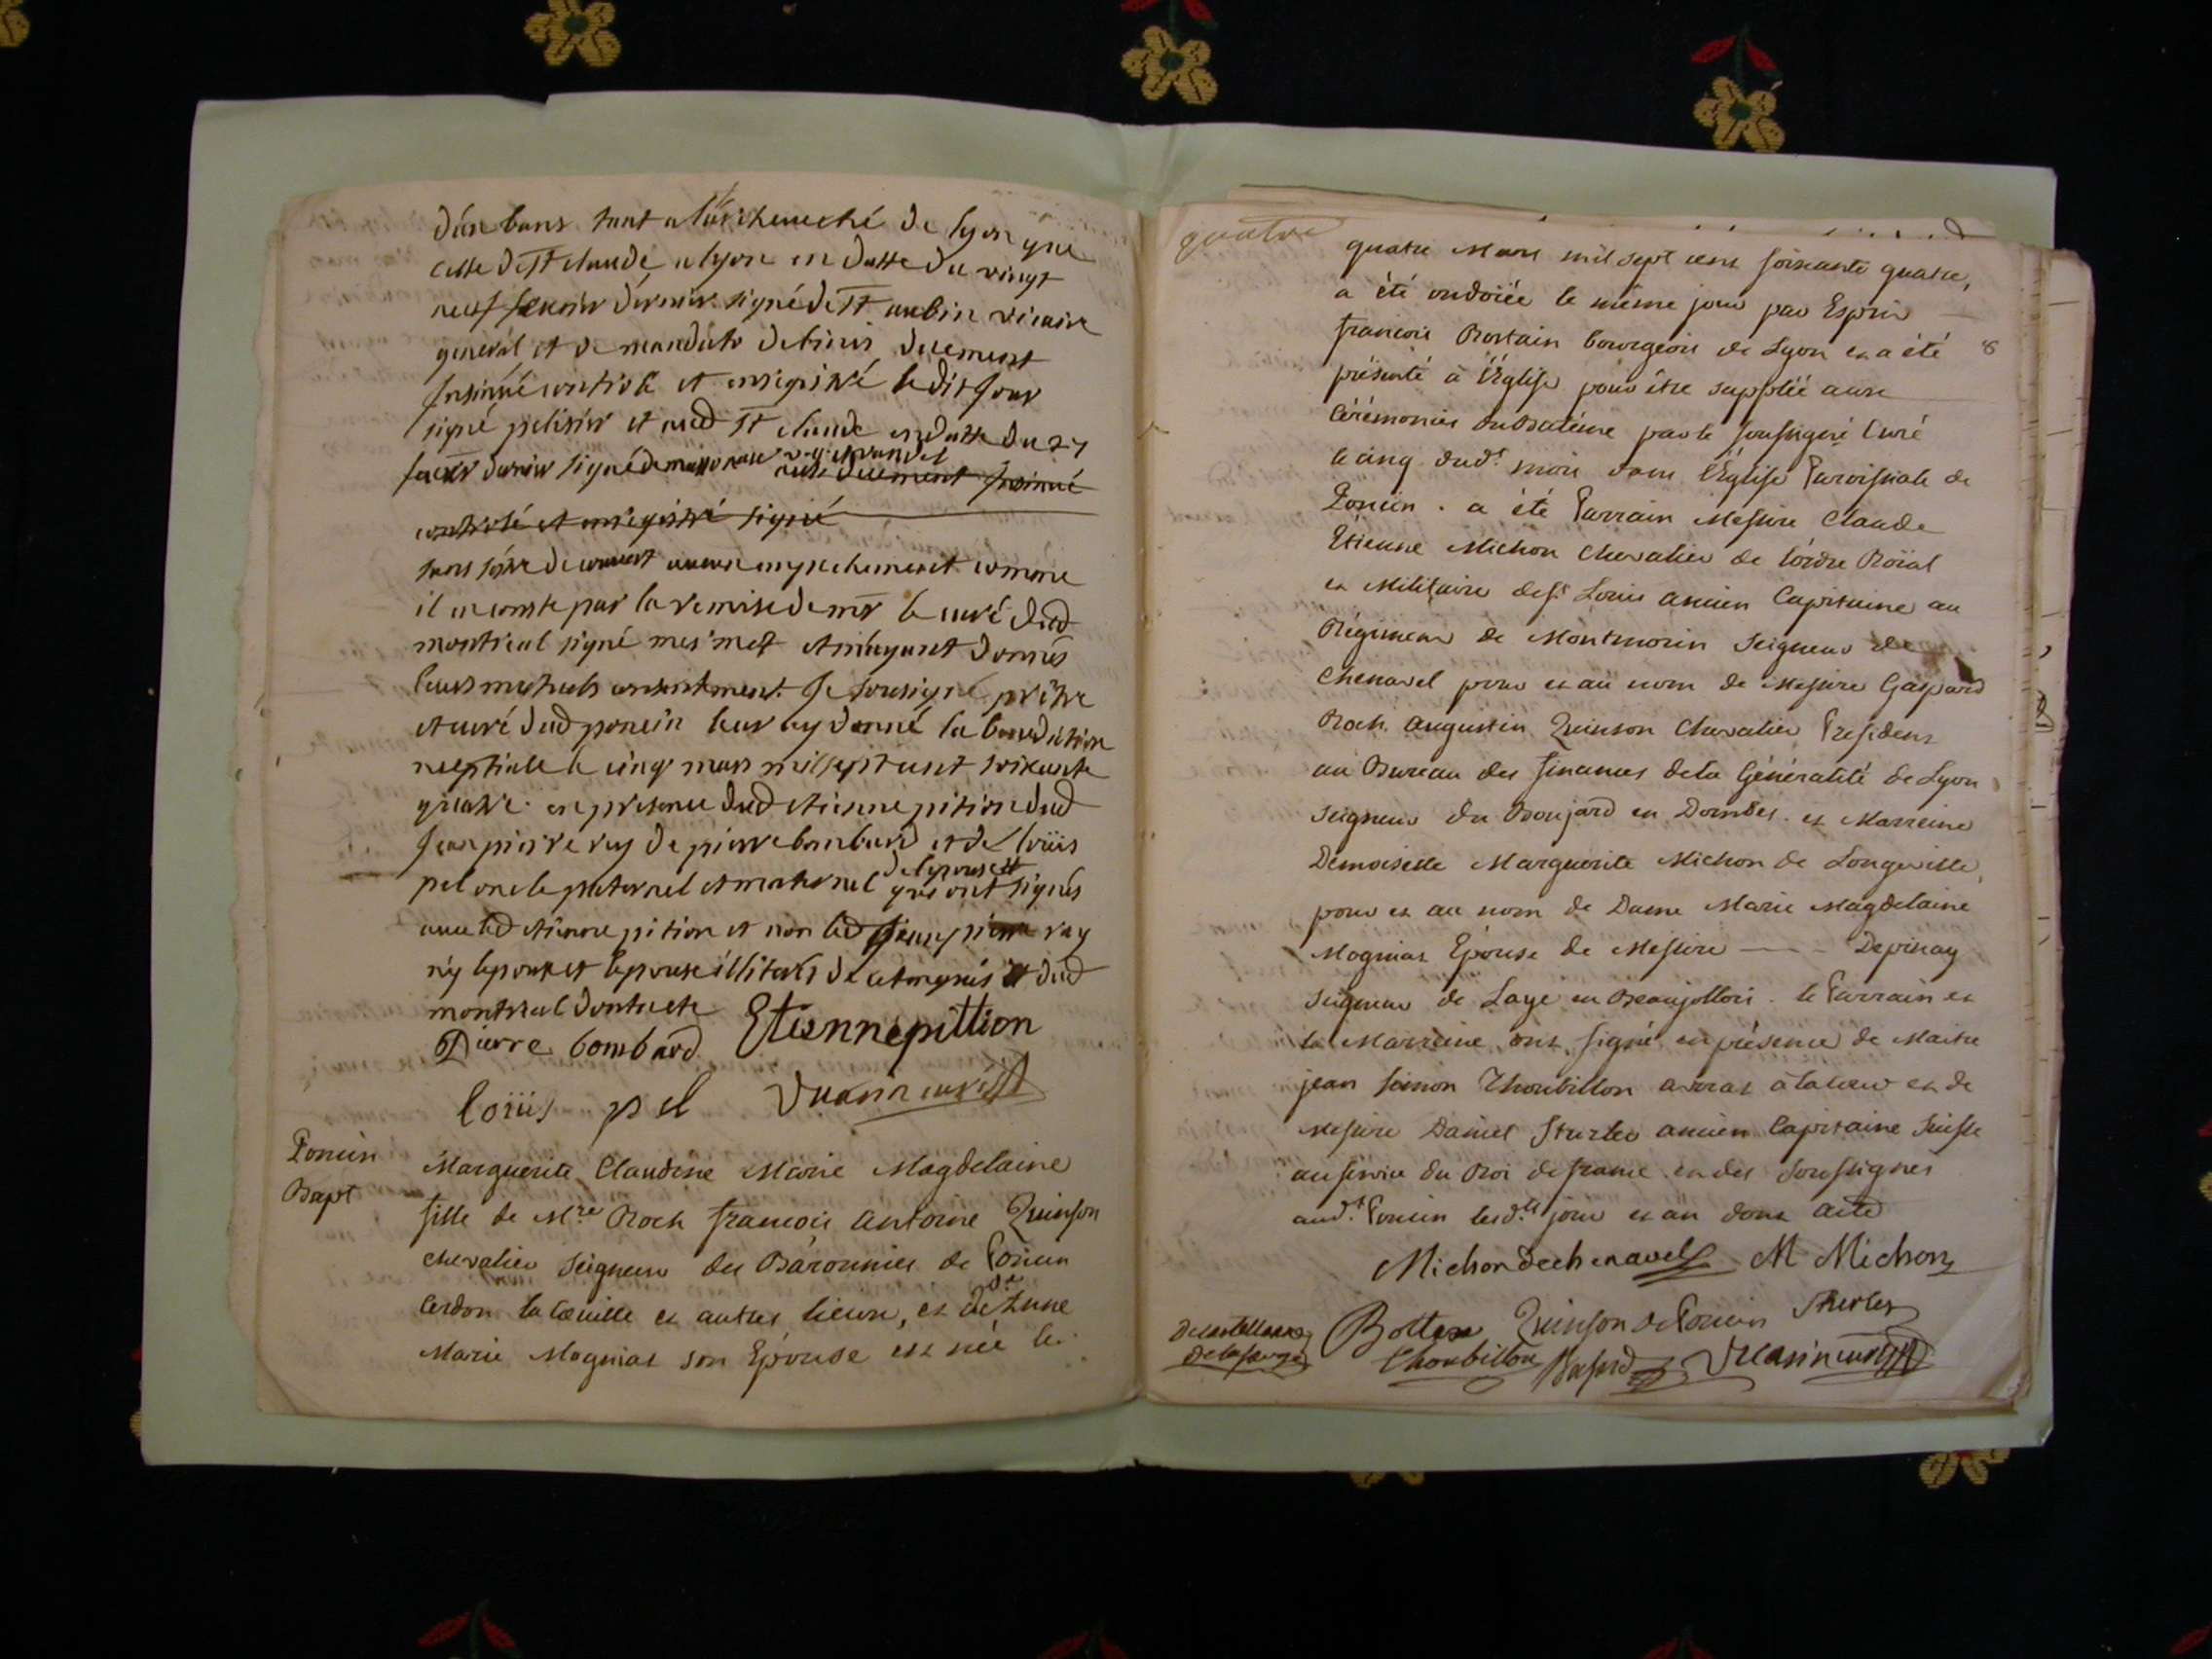 dés bans tant a l'archeveché de lyon que
celle de St claude a lyon en datte du vingt
neuf fevrier dernier signé de St aubin vicaire
général et de mandato debinis duement
Insinué controlé et enregistré le dit Jour
signé pelissier et aud St claude en datte du 27
fevrier dernier signé v.g.
aussi duement Insinué
controlé et enregistré signé
sans s'être decouvert aucun empechement comme
il en conste par la remise de mr le curé dud
montreal signé mermet et m'ayant donnés
leurs mutuels consentement Je soussigné prêtre
et curé dud poncin leur ay donné la benediction
nuptiale le cinq mars mil sept cent soixante
quatre en presence dud etienne pition dud
Jean pierre rey de pierre bombard et de loüis
pel oncle paternel et maternel de lepouse qui ont signés
avec led etienne pition et non led Jean pierre rey
n'y lepoux et lepouse illiterés de ce enquis et dud
montreal dont acte
Pierre bombard Etiennepittion
loüis pel Vuarin curé
Poncin
Bapt
Marguerite Claudine Marie Magdelaine
fille de Mre Roch françois Antoine Quinson
chevalier Seigneur des Baronnies de Poncin
Cerdon la Coeuille et autres lieux, et de De
Marie Magnias son Epouse est née le
quatre
quatre Mars mil sept cent soixante quatre,
a été ondoïée le même jour par Esprit
françois Rostain bourgeois de Lyon et a été
présenté à l'Eglise pour être supplée aux
Cérémonies du Batême par le soussigné Curé
le cinq dud.t mois dans l'Eglise Paroissiale de
Poncin . a été Parrain Messire Claude
Etienne Michon Chevalier de l'ordre Roïal
et Militaire de St Louis ancien Capitaine au
Régiment de Montmorin Seigneur de
Chenavel pour et au nom de Messire Gaspard
Roch Augustin Quinson Chevalier President
au Bureau des finances de la Généralité de Lyon
Seigneur du Boujard en Dombes . et Marreine
Demoiselle Marguerite Michon de Longeville,
pour et au nom de Dame Marie Magdelaine
Magnias Epouse de Messire — — Depinay
Seigneur de Laye en Beaujollois . le Parrain et
la Marreine ont signé en présence de Maitre
jean simon Thoubillon avocat à la cour et de
Messire Daniel Sturler ancien Capitaine Suisse
au service du Roi de france . et des Soussignés
aud.t Poncin lesd.ts jour et an dont acte
Michon Dechenavel M Michon
Bottex Quinson de Poncin Sturler
Thoubillon Vuarin curé